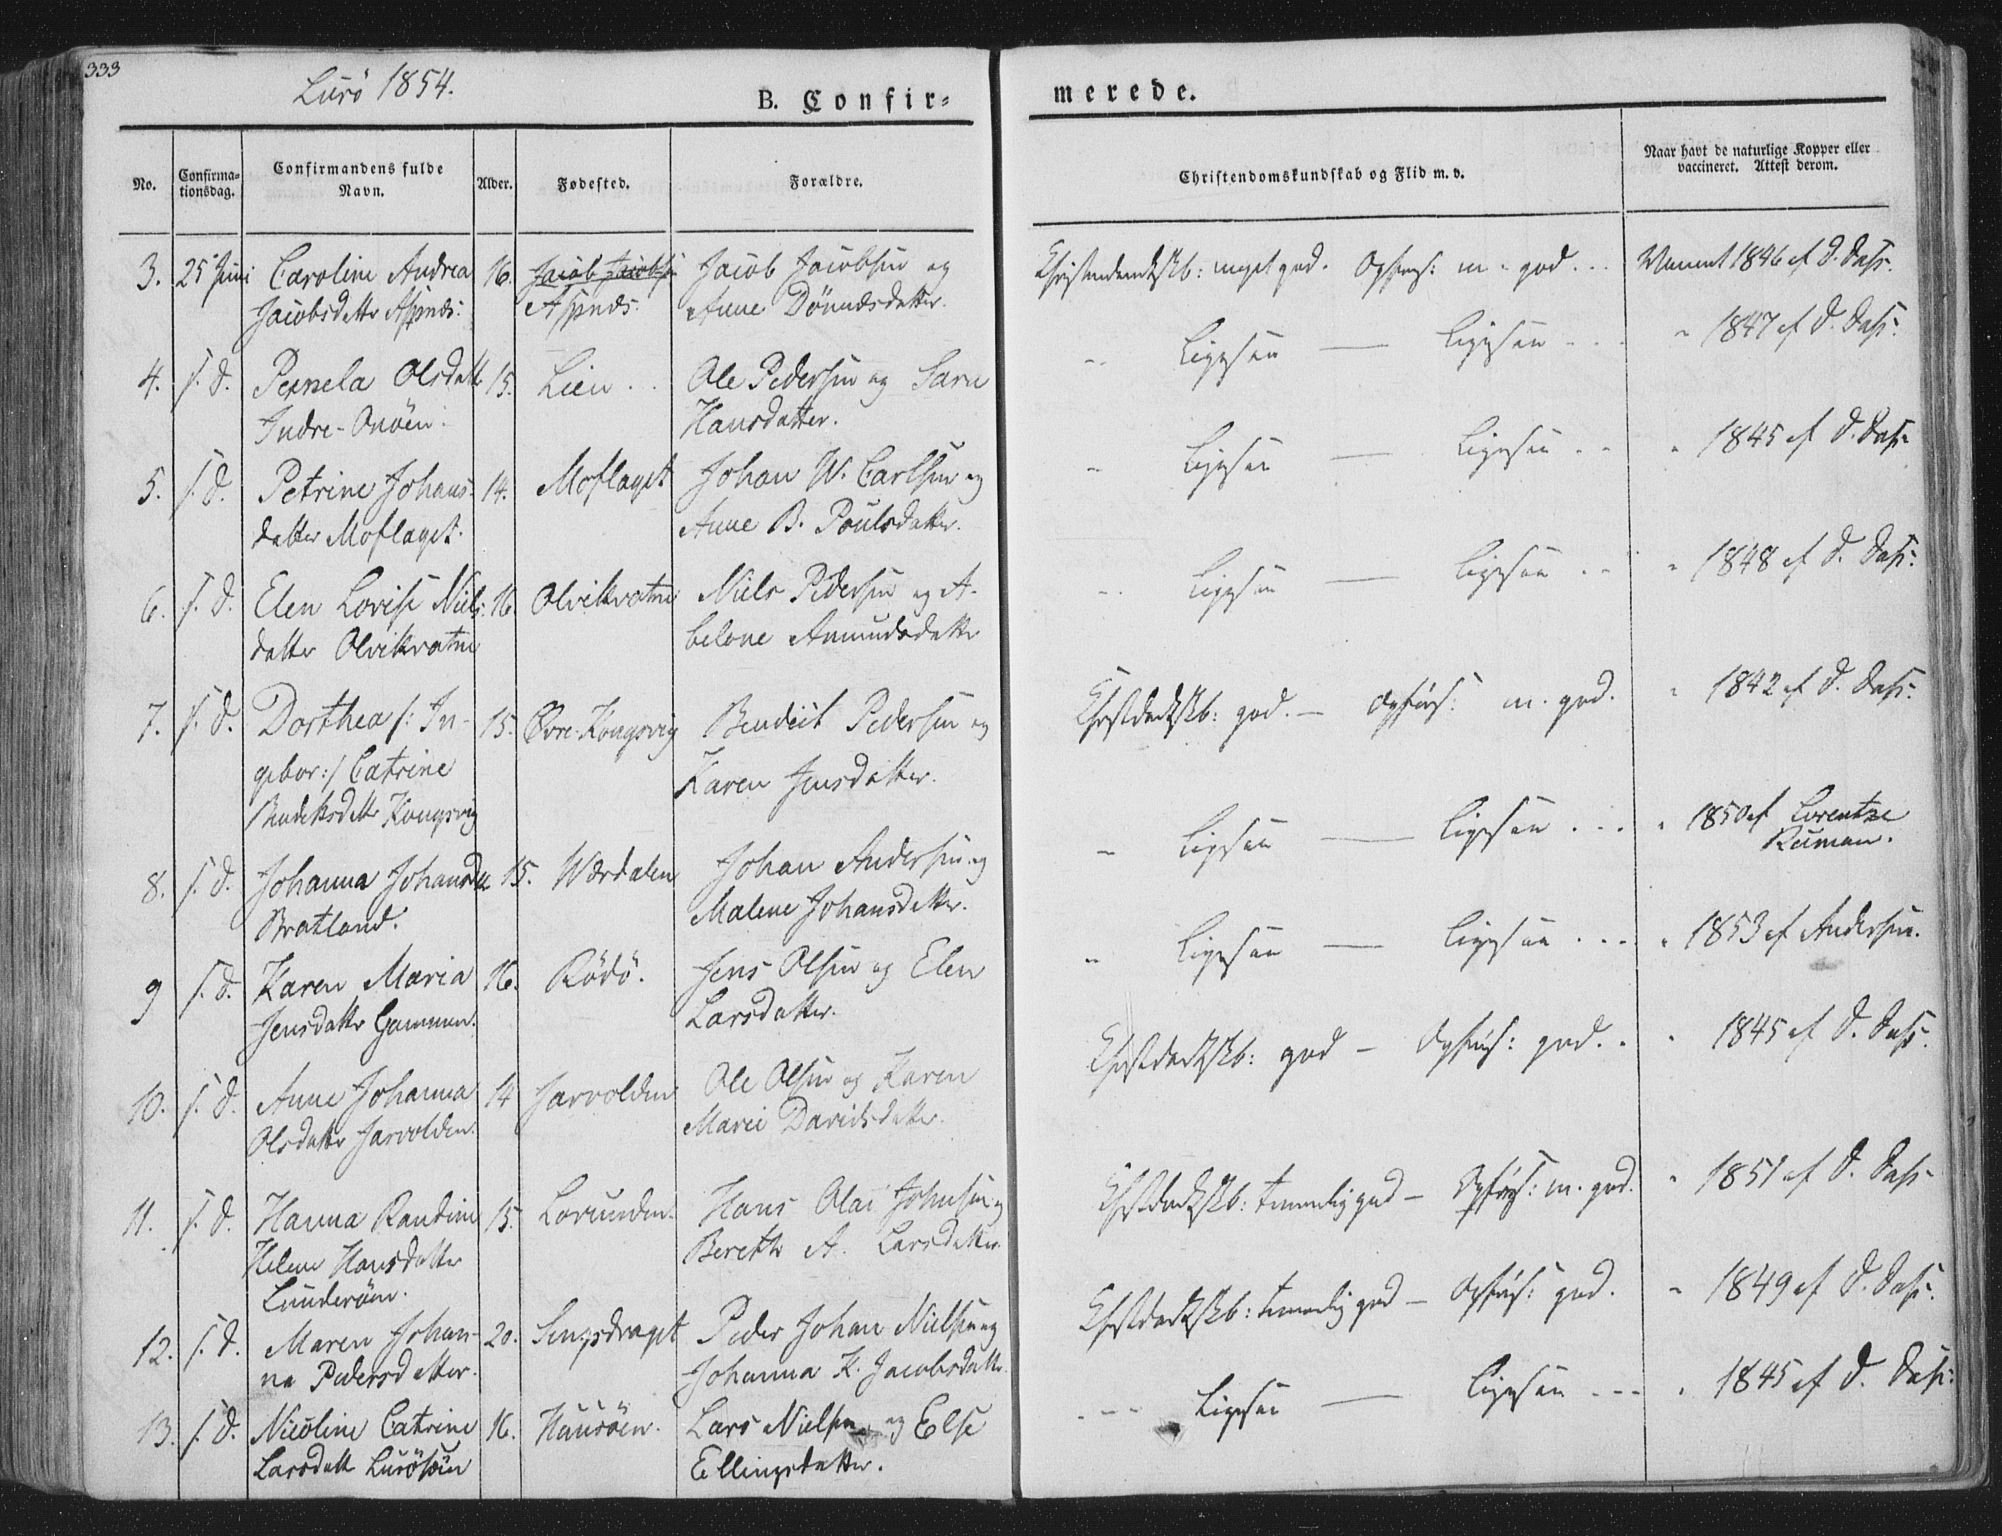 333
Lurö 1854.
B. Confir-
merede.
No.
Confirma-
tionsdag.
Confirmandens fulde
Navn.
Alder.
Fødested.
Forældre.
Christendomskundskab og Flid m. v.
Naar havt de naturlige Kopper eller
vaccineret. Attest derom.
3. 25 Juni Caroline Andrea 16. Jacob Jacobsen Jacob Jacobsen og
Jacobsdatter Aspnæs: Aspnæs. Anne Dönnæsdatter.
meget god. m. god. 1846 af D. Dass.
4. s. d. Pernela Olsdatt 15. Lien. Ole Pedersen og Sara
Indre-Onöen. Hansdatter.
Ligesaa — Ligesaa 1847 af D. Dass.
5. s. d. Petrine Johans- 14. Moflaget Johan W. Carlsen og
datter Moflaget. Anne B. Poulsdatter.
Ligesaa — Ligesaa 1845 af D. Dass.
6. s. d. Elen Lovise Niels- 16 Olvikvatne Niels Pedersen og A-
datter Olvikvatne belone Amundsdatter
Ligesaa — Ligesaa 1848 af D. Dass.
7. s. d. Dorthea /: In- 15. Øvre-Kongsvig Bendict Pedersen og
gebor :/ Catrine Karen Jensdatter.
Kongsvig
god. — m. god. 1842 af D. Dass.
8. s. d. Johanna Johansd 15. Wærdalen Johan Andersen og
Bratland. Malene Johansdatter.
Ligesaa — Ligesaa 1850 af Lorentze
Ruman.
9 s. d. Karen Maria 16. Rödö. Jens Olsen og Elen
Jensdatter Gammen. Larsdatter.
Ligesaa — Ligesaa 1853 af Andersen.
10. s. d. Anne Johanna 14 Jarvolden Ole Olsen og Karen
Olsdatter Jarvolden. Marie Davidsdatter.
god — god. 1845 af D. Dass.
11. s. d. Hanna Randine 15. Lovunden. Hans Olai Johnsen og
Helene Hansdatter Berethe A. Larsdatter.
Lunderöen.
temmelig god — m. god. 1851 af D. Dass
12. s. d. Maren Johan- 20. Sengsdraget Peder Johan Nielsen og
na Pedersdatter. Johanna K. Jacobsdatter.
temmelig god — god. 1849 af D. Dass.
13. s. d. Nicoline Catrine 16. Hansöen. Lars Nielsen og Else
Larsdatt Lurösöen Ellingsdatter.
Ligesaa — Ligesaa 1845 af D. Dass.